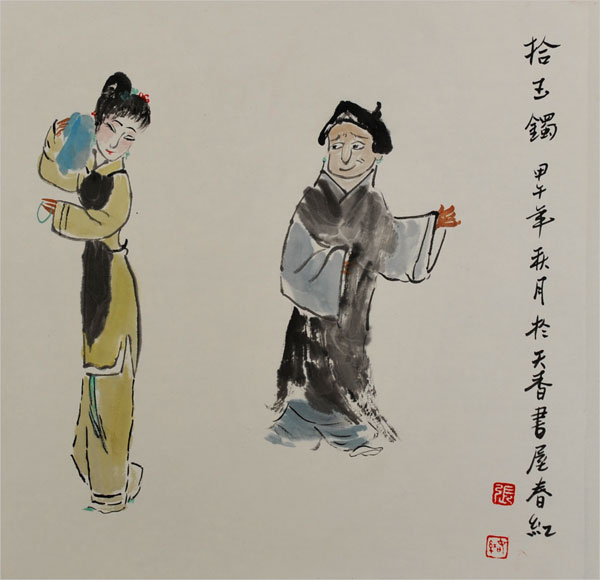 拾玉镯 甲午年秋月於天香書屋春紅
張